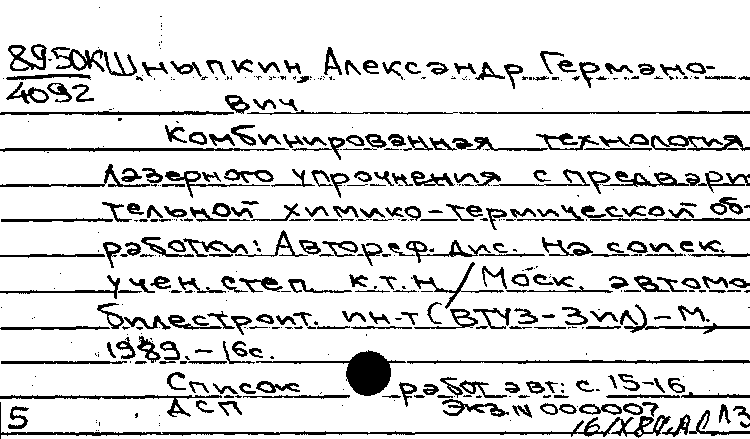 89-50К Шныпкин, Александр Германо-
4092 вич.
Комбинированная технология
лазерного упрочнения с предвари
тельной химико-термической об
работки: Автореф. дис. на соиск.
учен. степ. к.т.н / Моск. автомо
билестроит. ин-т (ВТУЗ-Зил) - М.,
1989. - 16с.
Список работ авт.: с. 15-16.
ДСП Экз. N 000007
5 16/X 89.